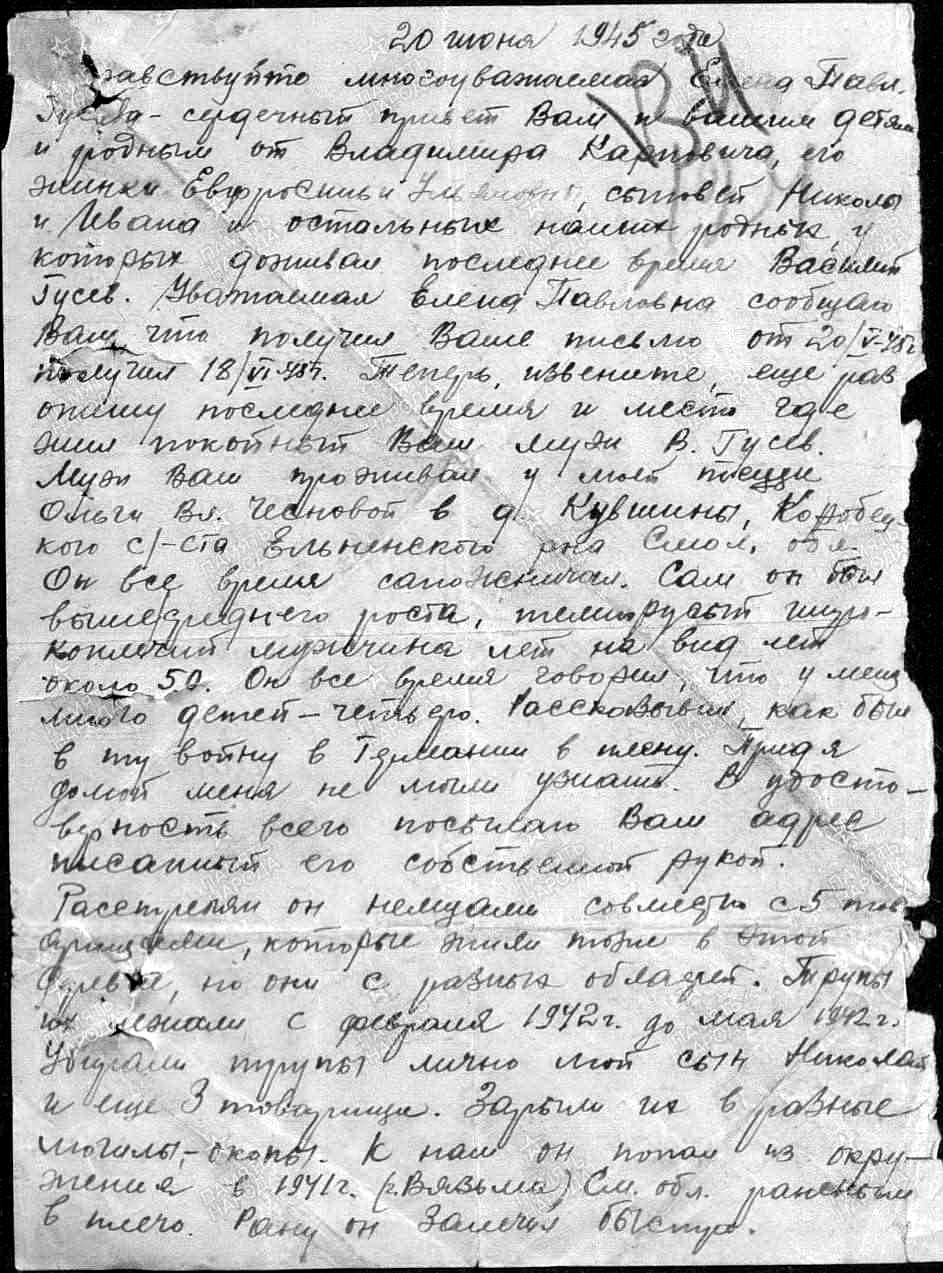 20 июня 1945 года
равствуйте многоуважаемая Елена Павл.
Гусева - сердечный привет Вам и вашим детям
и родным от Владимира Карповича, его
жинки Евфросиньи, сыновей Николы
и Ивана и остальных наших родных, у
которых доживал последнее время Василий
Гусев. Уважаемая Елена Павловна сообщаю
Вам, что получил Ваше письмо от 20/V-45г.
получил 18/VI-45г. Теперь, извените, еще раз
опишу последнее время и место где
жил покойный Ваш муж В. Гусев.
Муж Ваш проживал у моей тещи
Ольги Вл. Чесновой в д. Кувшины, Коробец-
кого с/-ста Ельненского рна Смол. обл.
Он все время сапожничал. Сам он был
вышесреднего роста, темнорусый широ-
коплечий мужчина лет на вид лет
около 50. Он все время говорил, что у меня
много детей - четьверо. Рассказывал, как был
в ту войну в Германии в плену. Придя
домой меня не могли узнать. В удосто-
верность всего посылаю Вам адрес
писанный его собственной рукой.
Расстрелян он немцами совместно с 5 тов
арищами, которые жили тоже в этой
деревне, но они с разных областей. Трупы
их лежали с февраля 1942г. до мая 1942г.
Убирали трупы лично мой сын Николай
и еще 3 товарища. Зарыли их в разные
могилы, - окопы. К нам он попал из окру-
жения в 1941г. (г. Вязьма) См. обл. раненым
в плечо. Рану он залечил быстро.